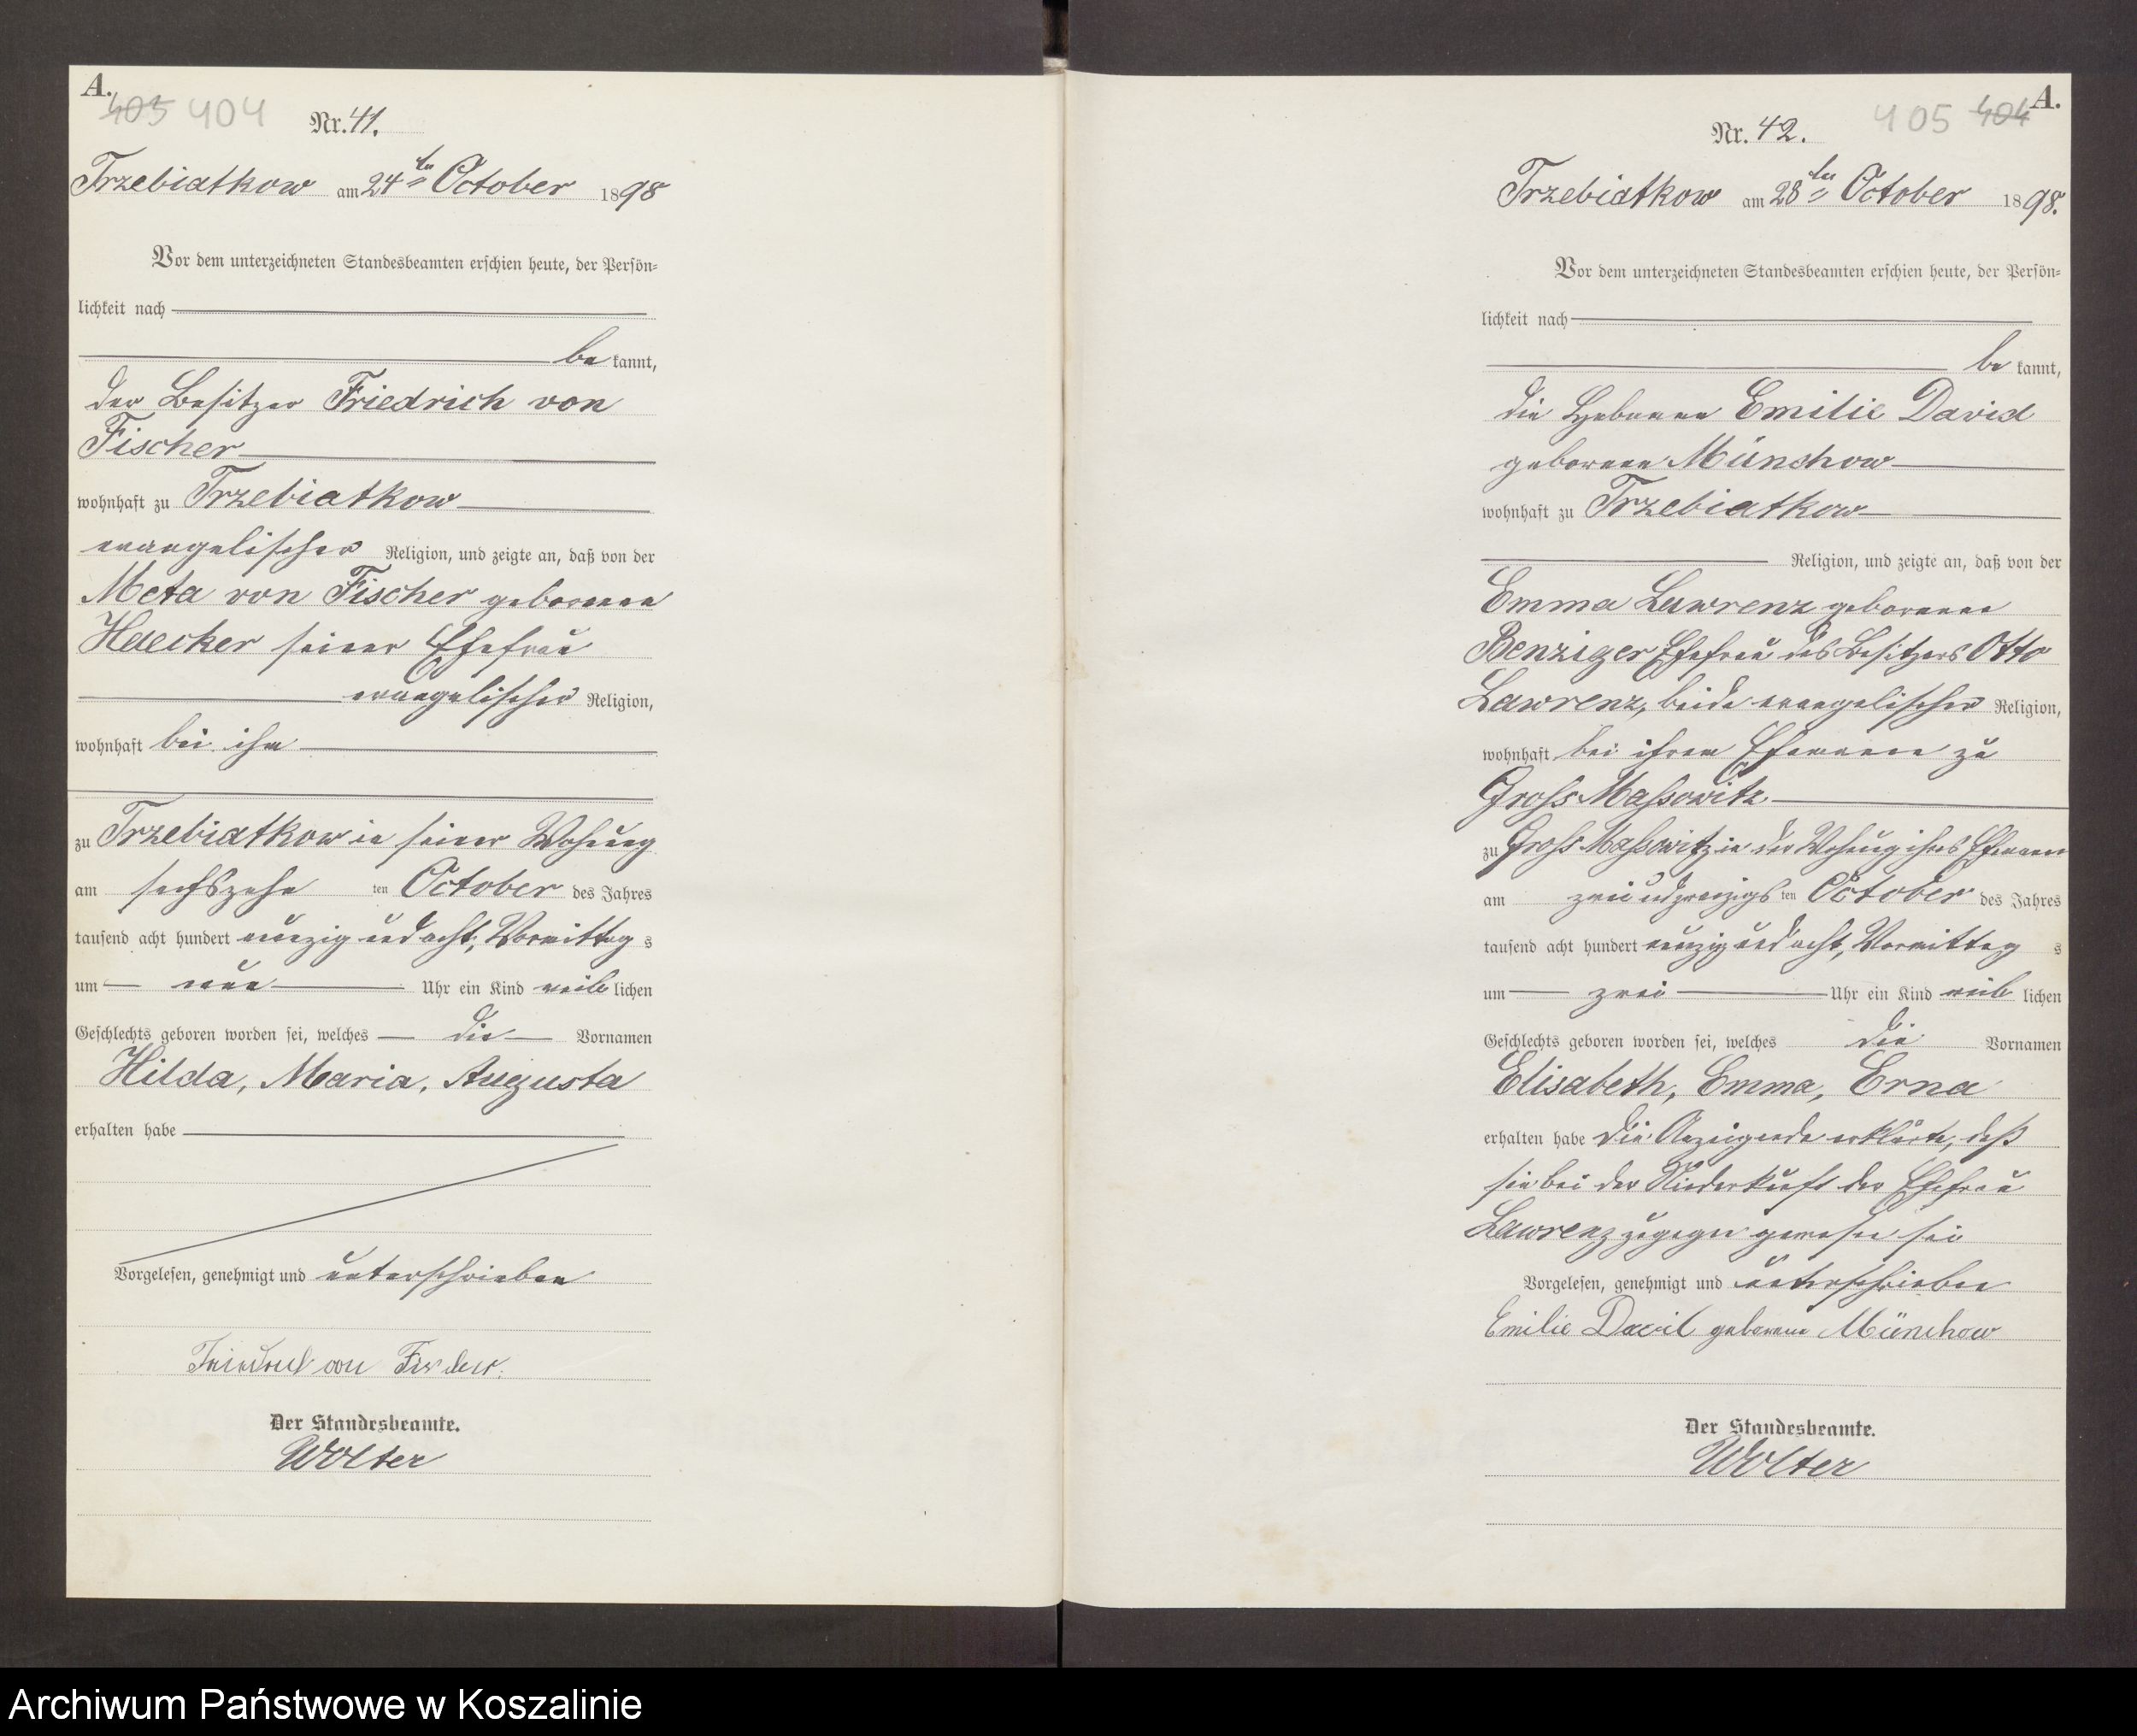 A.
405 404
Nr. 41.
Trzebiatkow am 24ten October 1898
Vor dem unterzeichneten Standesbeamten erschien heute, der Persön=
lichkeit nach
be kannt,
der Besitzer Friedrich von
Fischer
wohnhaft zu Trzebiatkow
evangelischer Religion, und zeigte an, daß von der
Meta von Fischer geborenen
Haecker seiner Ehefrau
evangelischer Religion,
wohnhaft bei ihm
zu Trzebiatkow in seiner Wohnung
am sechszehn ten October des Jahres
tausend acht hundert neunzig und acht, Vormittag s
um neun Uhr ein Kind weib lichen
Geschlechts geboren worden sei, welches die Vornamen
Hilda, Maria, Augusta
erhalten habe
Vorgelesen, genehmigt und unterschrieben
Friedrich von Fischer.
Der Standesbeamte.
Wolter
A.
405 404
Nr. 42.
Trzebiatkow am 28ten October 1898.
Vor dem unterzeichneten Standesbeamten erschien heute, der Persön=
lichkeit nach
be kannt,
die Hebamme Emilie David
geborene Münchow
wohnhaft zu Trzebiatkow
Religion, und zeigte an, daß von der
Emma Lawrenz geborenen
Benziger Ehefrau des Besitzers Otto
Lawrenz, beide evangelischer Religion,
wohnhaft bei ihrem Ehemanne zu
Gross Massowitz
zu Gross Massowitz in der Wohnung ihres Ehemannes
am zweiundzwanzigs ten October des Jahres
tausend acht hundert neunzig und acht, Vormittag s
um zwei Uhr ein Kind weib lichen
Geschlechts geboren worden sei, welches die Vornamen
Elisabeth, Emma, Erna
erhalten habe Die Anzeigende erklärte, daß
sie bei der Niederkunft der Ehefrau
Lawrenz zugegen gewesen sei
Vorgelesen, genehmigt und unterschrieben
Emilie David geborene Münchow
Der Standesbeamte.
Wolter
Archiwum Państwowe w Koszalinie